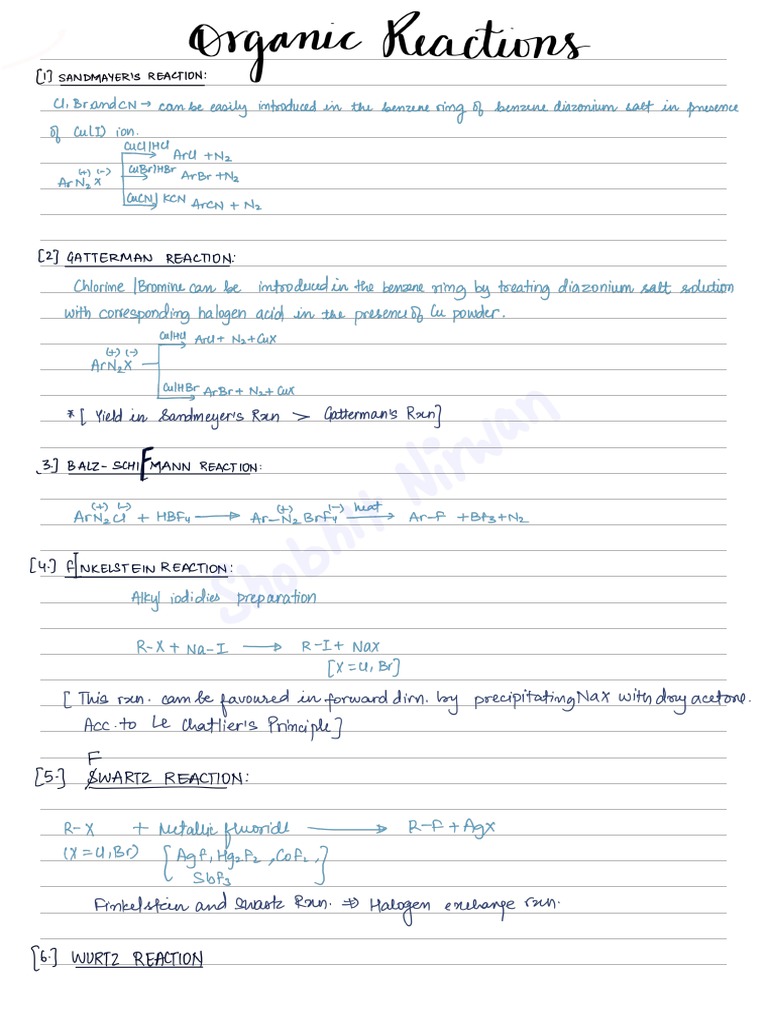 Organic Reactions
[1] SANDMAYER'S REACTION:
Cl, Br and CN → can be easily introduced in the benzene ring of benzene diazonium salt in presence
of Cu(I) ion.
CuCl|HCl ArCl + N2
(+) (-)
ArN2X CuBr|HBr ArBr + N2
CuCN| KCN ArCN + N2
[2] GATTERMAN REACTION:
Chlorime |Bromime can be introduced in the benzene ring by treating diazonium salt solution
with corresponding halogen acid in the presence of Cu powder.
Cu|HCl ArCl + N2 + CuX
(+) (-)
ArN2X
Cu|HBr ArBr + N2 + CuX
*[ Yield in Sandmeyer's Rxn > Gatterman's Rxn]
3.] BALZ-SCHIFMANN REACTION:
(+) (-) (+) (-) heat
ArN2Cl + HBF4 ⟶ Ar-N2BrF4 ⟶ Ar-F + BF3 + N2
[4.] FINKELSTEIN REACTION:
Alkyl iodidies preparation
R-X + Na-I ⟶ R-I + NaX
[X = Cl, Br]
[ This rxn. can be favoured in forward dirn. by precipitating NaX with dry acetone.
Acc. to Le Chatlier's Principle]
F
[5.] SWARTZ REACTION:
R-X + Metallic fluoride ⟶ R-F + AgX
(X = Cl, Br) [AgF, Hg2F2, CoF2,
SbF3]
Finkelstein and Swartz Rxn. ⇒ Halogen exchange rxn.
[6.] WURTZ REACTION
Shobhit Nirwan